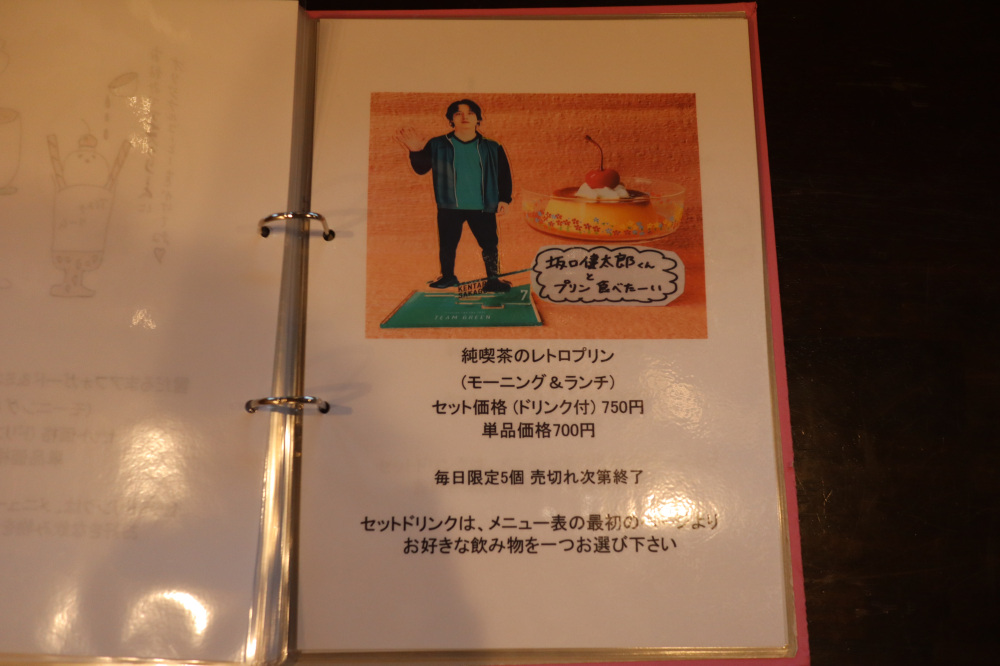 坂口健太郎くん
と
プリン食べたーい
7
TEAM GREEN
純喫茶のレトロプリン
(モーニング&ランチ)
セット価格(ドリンク付)750円
単品価格700円
毎日限定5個 売切れ次第終了
セットドリンクは、メニュー表の最初の より
お好きな飲み物を一つお選び下さい